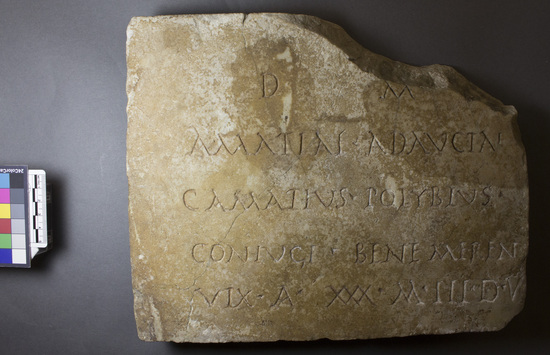 D M
AMATIAE ADAVCTAE
C AMATIVS · POLYBIVS ·
CONIVGI · BENE MEREN
VIX · A · XXX · M · III · D · V